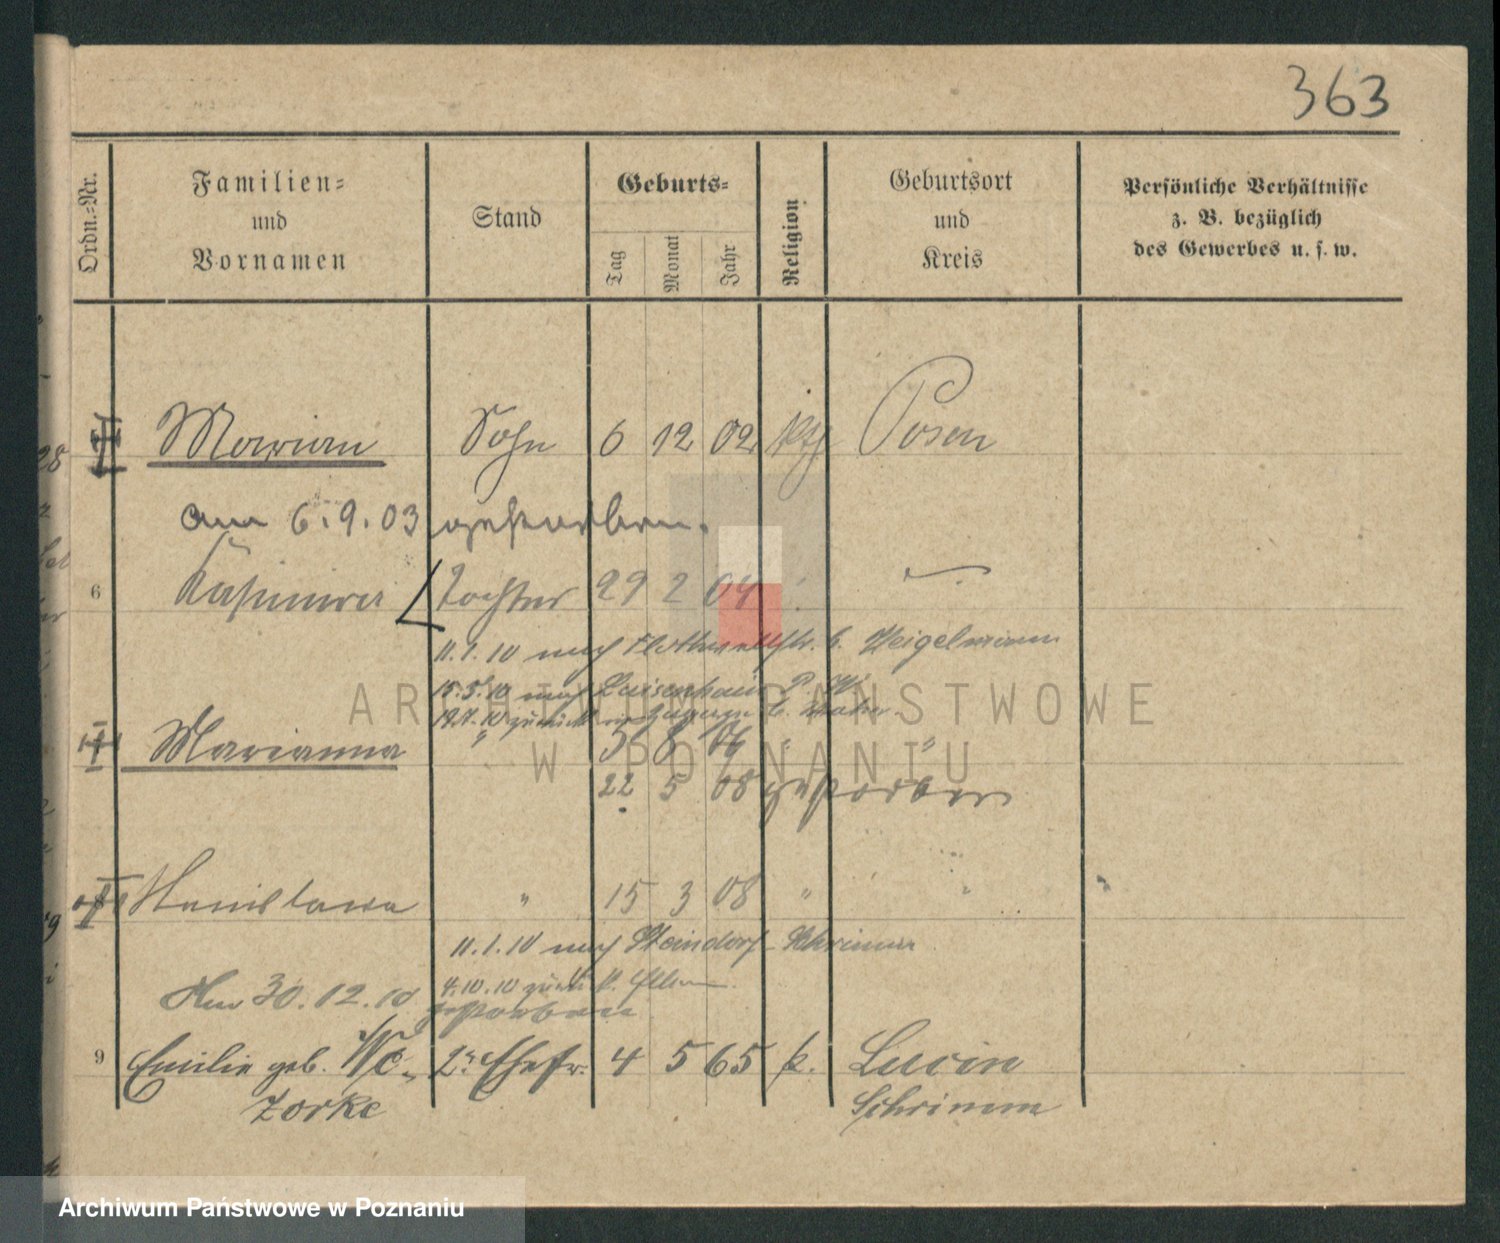 363
Ordn.=Nr.
Familien=
und
Vornamen
Stand
Geburts=
Tag
Monat
Jahr
Religion
Geburtsort
und
Kreis
Persönliche Verhältnisse
z. B. bezüglich
des Gewerbes u. s. w.
Marian Sohn 6 12 02 kth Posen
am 6.9.03 gestorben.
6 Kasimira Tochter 29 2 04
11.1.10 nach Flottwellstr. 6. Weigelmann
15.3.10 nach Luisenhain P. W.
19.7.10 zurück
Marianna " 5 8 06 " "
22 5 08 gestorben
Stanislawa " 15 3 08 " "
11.1.10 nach Steindorf Schrimm
4.10.10 zurück
Am 30.12.10 gestorben
9 Emilie geb. We- 2te Ehefr. 4 5 65 k. Lucin
zorke Schrimm
ARCHIWUM PAŃSTWOWE
W POZNANIU
Archiwum Państwowe w Poznaniu